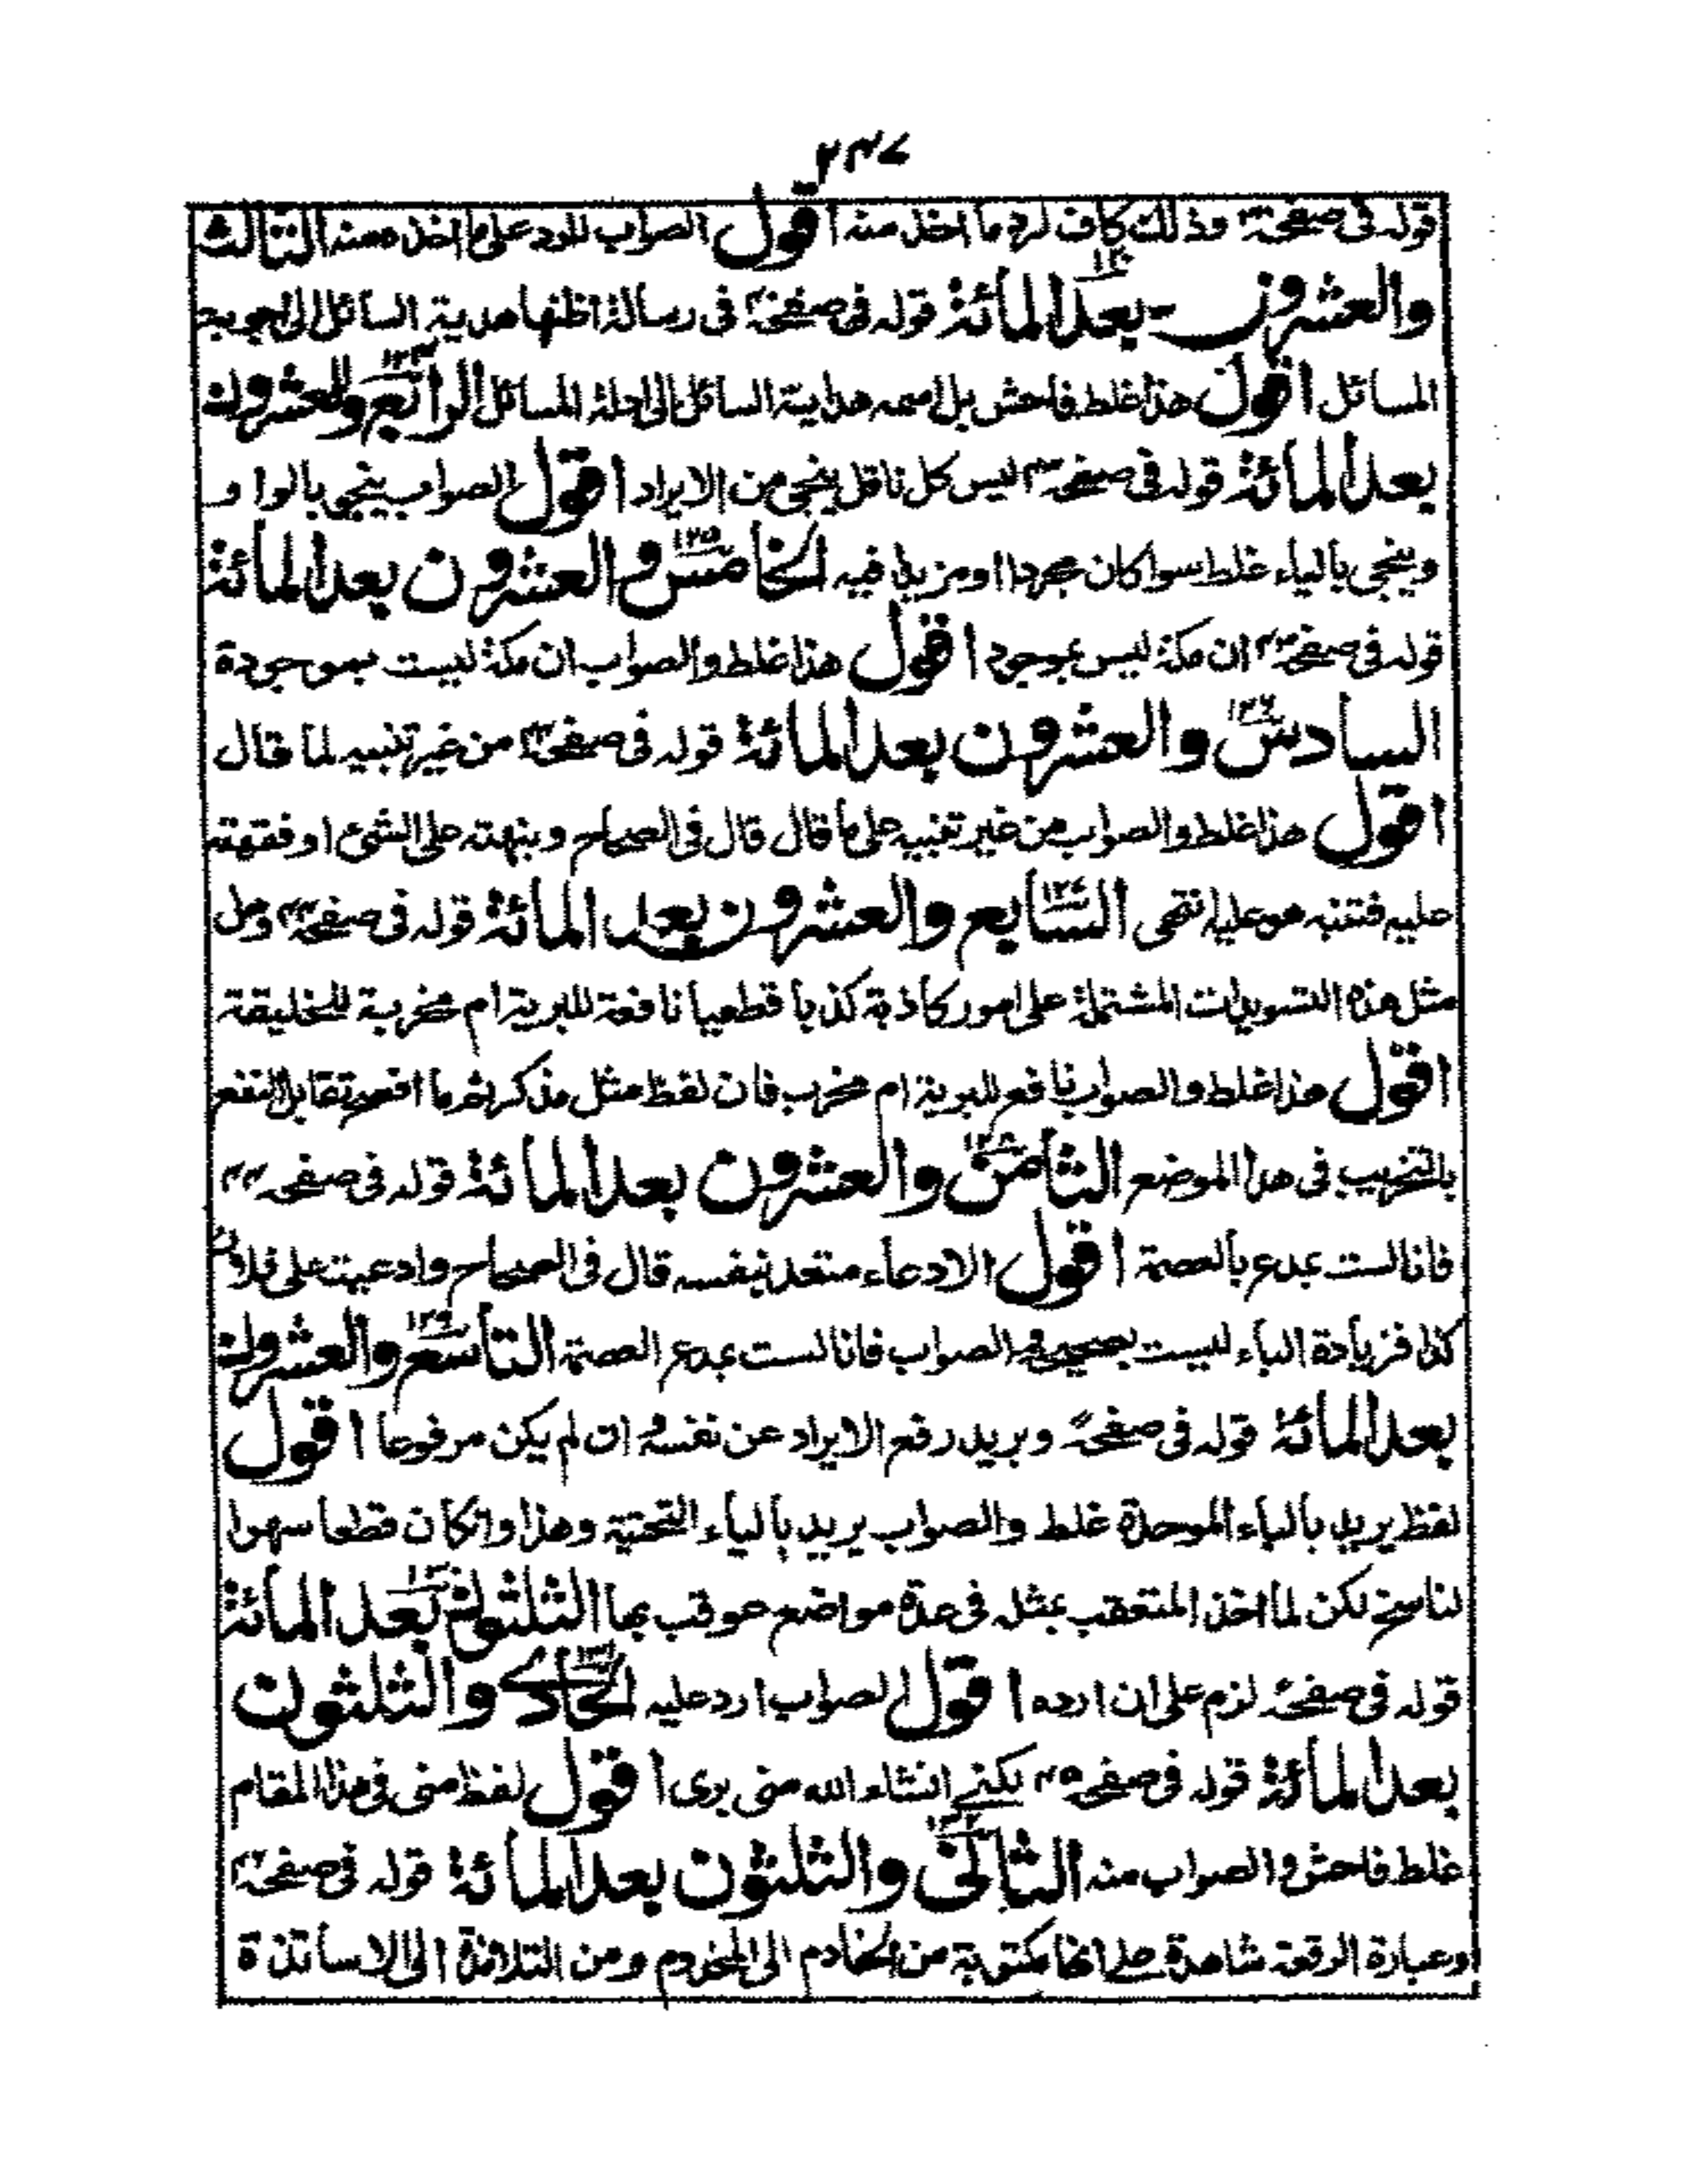 ٢٣٧
قوله فى صفحة وذلك كاف لرد ما اخذ منه اقول الصواب للرد على ما اخذه منه الثالث
والعشرون بعد المائة قوله فى صفحة فى رسالة اظنها هدية السائل الى اجوبة
المسائل اقول هذا غلط فاحش بل اسمه هداية السائل الى ادلة المسائل الرابع والعشرون
بعد المائة قوله فى صفحة ليس كل ناقل ينجى من الايراد اقول الصواب ينجو بالواو
وينجى بالياء غلط سوا كان مجردا او مزيدا فيه الخامس والعشرون بعد المائة
قوله فى صفحة ان مكة ليس بموجود اقول هذا غلط والصواب ان مكة ليست بموجودة
السادس والعشرون بعد المائة قوله فى صفحة من غير تنبيه لما قال
اقول هذا غلط والصواب من غير تنبيه على ما قال قال فى الصحاح ونبهته على الشئ اوفقته
عليه فتنبه هو عليه انتهى السابع والعشرون بعد المائة قوله فى صفحة وهل
مثل هذه التسويدات المشتملة على امور كاذبة كذبا قطعيا نافعة للبرية ام مخربة للخليقة
اقول هذا غلط والصواب نافع للبرية ام مخرب فان لفظ مثل مذكر ثم ما افصح تقابل النفع
بالتخريب فى هذا الموضع الثامن والعشرون بعد المائة قوله فى صفحه ٢٣
فانا لست بمدع بالعصمة اقول الادعاء متعد بنفسه قال فى الصحاح وادعيت على فلان
كذا فزيادة الباء ليست بصحيحة الصواب فانا لست بمدع العصمة التاسع والعشرون
بعد المائة قوله فى صفحة وبريد رفع الايراد عن نفسه ان لم يكن مرفوعا اقول
لفظ بريد بالباء الموحدة غلط والصواب يريد بالياء التحتية وهذا وان كان قطعا سهوا
لناسخ لكن لما اخذ المتعقب بمثله فى عدة مواضع عوقب بها الثلثون بعد المائة
قوله فى صفحة لزم على ان ارده اقول الصواب ارد عليه الحادى والثلثون
بعد المائة قوله فى صفحه ٢٥ لكنى انشاء الله منى برى اقول لفظ منى فى هذا المقام
غلط فاحش والصواب منه الثانى والثلثون بعد المائة قوله فى صفحة
وعبارة الرقعة شاهدة على انها مكتوبة من الخادم الى المخدوم ومن التلامذة الى الاساتذة